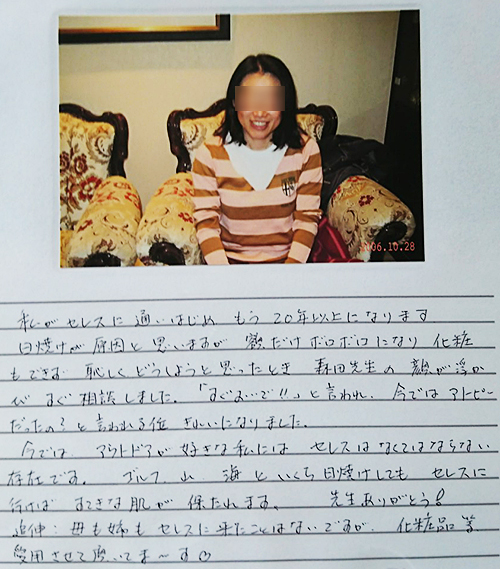 2006.10.28
私がセレスに通いはじめ もう20年以上になります
日焼けが原因と思いますが 顔だけボロボロになり 化粧
もできず 恥しくどうしようと思ったとき 森田先生の顔が浮か
び すぐ相談しました。「すぐ…で!!」と言われ、今ではアトピー
だったの?と言われる位 きれいになりました。
今では アウトドアが好きな私には セレスはなくてはならない
存在です。 ゴルフ、山、海といくら日焼けしても セレスに
行けば すてきな肌が 保たれます。 先生ありがとう!
追伸:母も姉もセレスに来たことはないですが、化粧品等
愛用させて頂いてま〜す♡